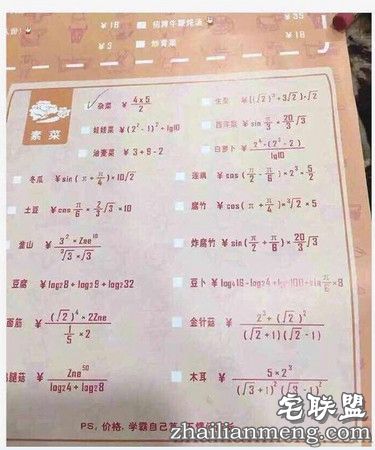 ¥18
招牌牛腰炖汤
¥35
¥3
炒青菜
¥18
素菜
杂菜 ¥ 4×5/2
生菜 ¥[(√2)²+3√2]×√2
娃娃菜 ¥(2²-1)²+lg10
西洋菜 ¥sin π/3 × 20/3 √3
油麦菜 ¥3+9-2
白萝卜 ¥ 2⁴-(2²-2)/lg10
冬瓜 ¥sin(π+π/4)×10√2
莲藕 ¥cos(π/2-π/6)×2³×5/2
土豆 ¥cos π/6 × 2/3 √3 ×10
腐竹 ¥cos(π+π/4)×³√2×5
淮山 ¥ 3²×2ne¹⁰/³√3×√3
炸腐竹 ¥sin(π/2+π/6)×20/3 √3
豆腐 ¥log₂8+log₂9+log₂32
豆卜 ¥log₄16-log₂4+lg100+sin π/6 ×8
面筋 ¥ (√2)⁴×2Zne/1/5×2
金针菇 ¥ 2³+(√2)²/(√2+1)(√2-1)
腿菇 ¥ Zne⁵⁰/log₂4+log₂8
木耳 ¥ 5×2³/(√3+1)²(√3-1)²
PS,价格,学霸自己算,
宅联盟
zhailianmeng.com